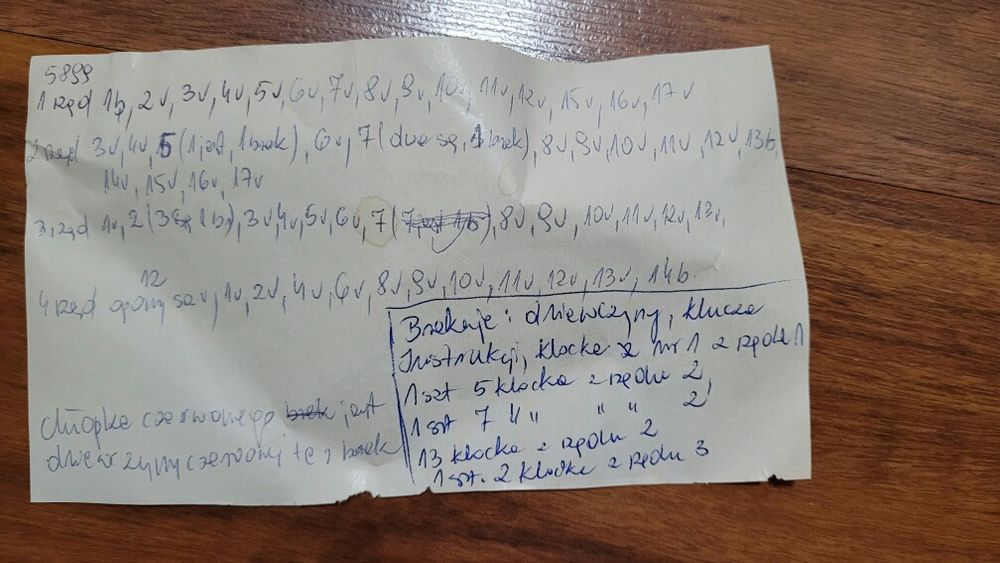 5899
1 rząd 1b, 2v, 3v, 4v, 5v, 6v, 7v, 8v, 9v, 10v, 11v, 12v, 15v, 16v, 17v
2 rząd 3v, 4v, 5 (1 jest, 1 brak), 6v, 7 (dwa są, 1 brak), 8v, 9v, 10v, 11v, 12v, 13b,
14v, 15v, 16v, 17v
3 rząd 1v, 2 (3 są 1 b), 3v, 4v, 5v, 6v, 7 (7 jest 1b), 8v, 9v, 10v, 11v, 12v, 13v,
12
4 rząd opony są v, 1v, 2v, 4v, 6v, 8v, 9v, 10v, 11v, 12v, 13v, 14b
Brakuje: dziewczyny, klucza
Instrukcji, klocka z nr 1 z rzędu 1
1 szt 5 klocka z rzędu 2,
1 szt 7 " " " " 2
13 klocka z rzędu 2
1 szt. 2 klocka z rzędu 3
chłopka czerwonego brak jest
dziewczyny czerwonej też brak